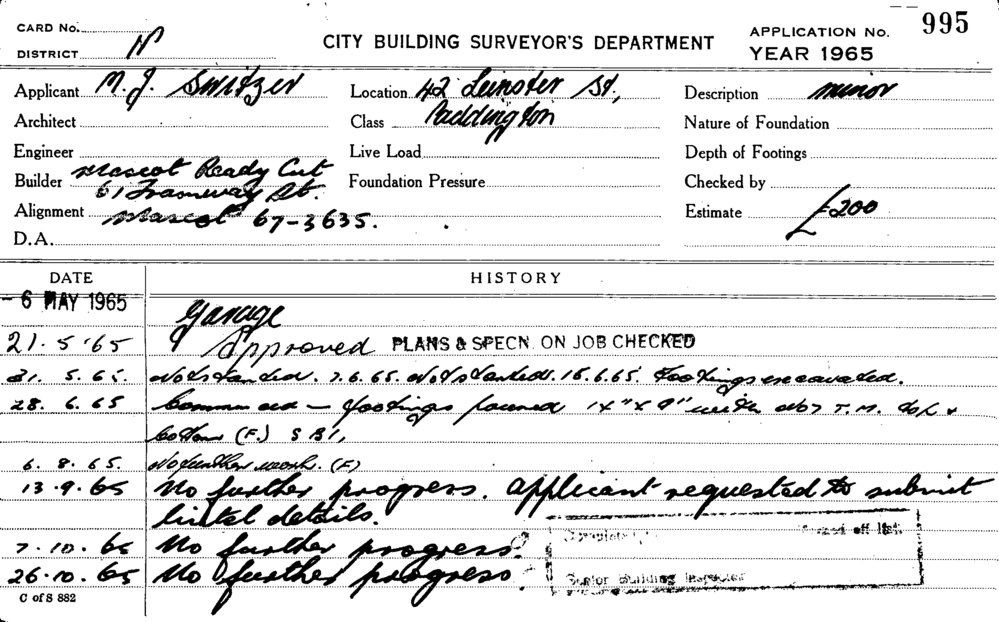 CARD No.
DISTRICT N
CITY BUILDING SURVEYOR'S DEPARTMENT
APPLICATION No. 995
YEAR 1965
Applicant M. J. Switzer
Location 42 Leinster St,
Description minor
Architect
Class Paddington
Nature of Foundation
Engineer
Live Load
Depth of Footings
Builder Mascot Ready Cut
61 Tramway St.
Foundation Pressure
Checked by
Alignment Mascot 67-3635.
Estimate £200
D.A.
DATE HISTORY
- 6 MAY 1965 Garage
21. 5. 65 Approved PLANS & SPECN. ON JOB CHECKED
31. 5. 65. Not started. 7.6.65. Not started. 18.6.65. Footings excavated.
28. 6. 65 Commenced – footings poured 14" x 9" with No 7 T.M. top &
bottom (F.)
6. 8. 65. No further work. (F)
13. 9. 65 No further progress. Applicant requested to submit
lintel details.
7. 10. 65 No further progress.
26. 10. 65 No further progress
Senior Building Inspector
C of S 882